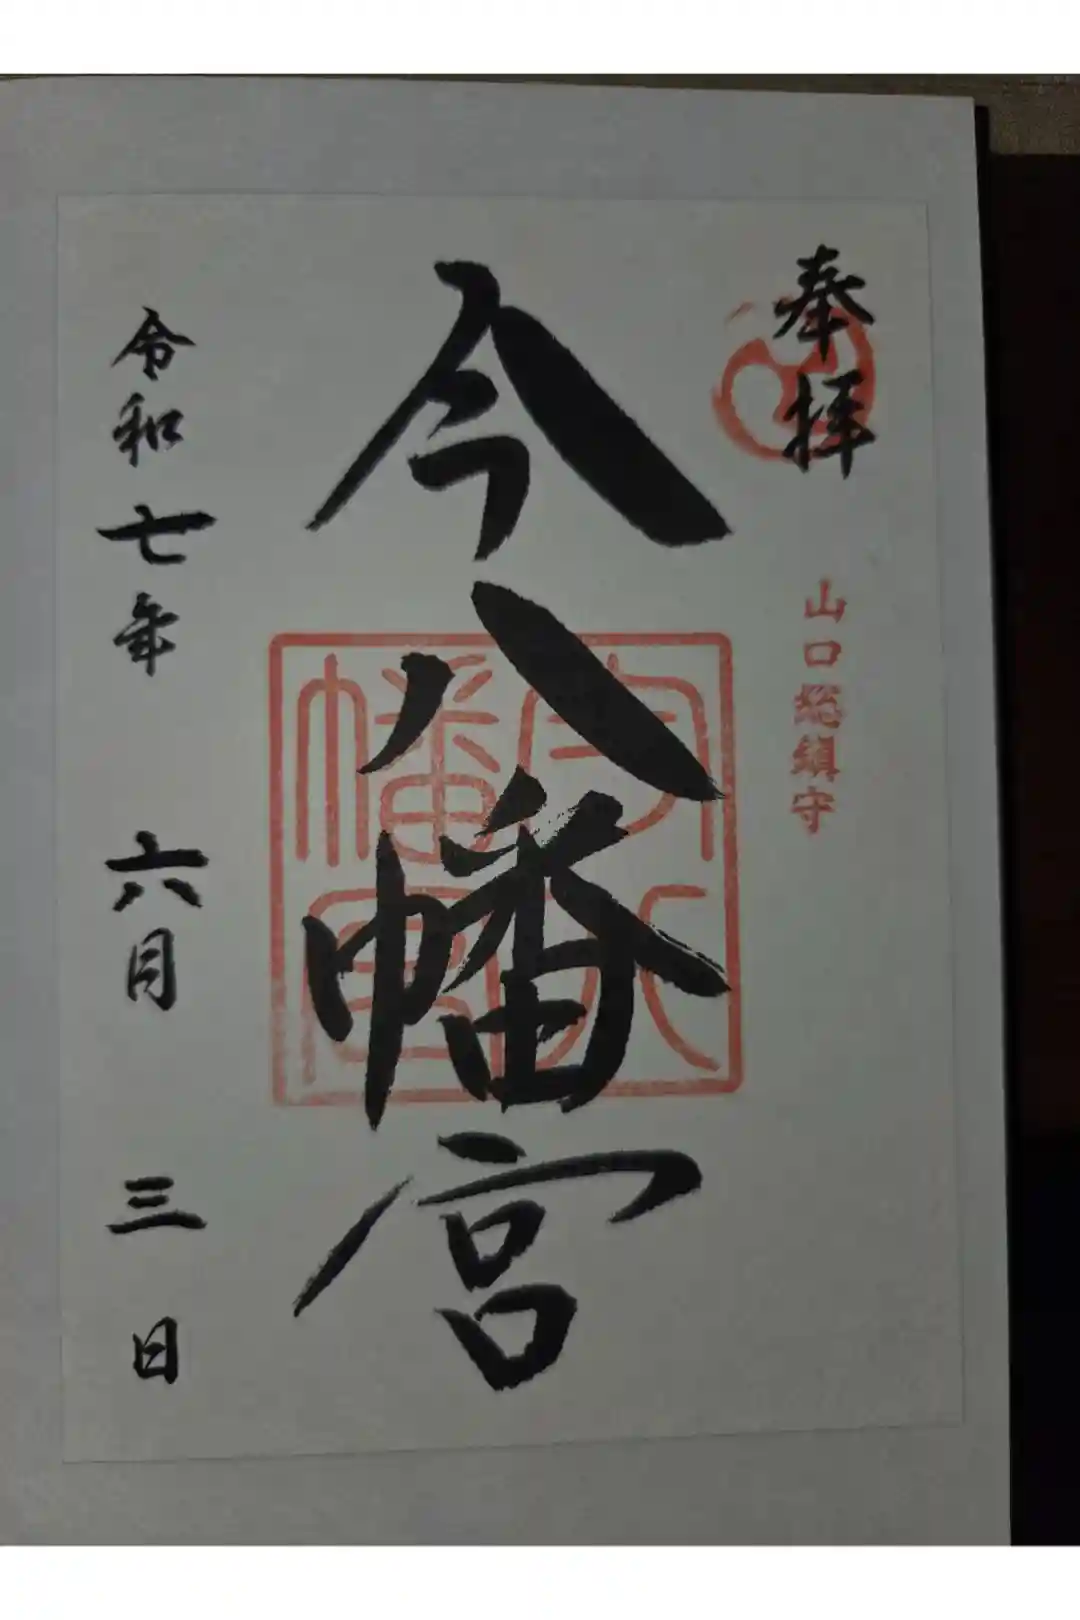 奉拝
山口総鎮守
今八幡宮
今八
幡宮
令和七年 六月 三日